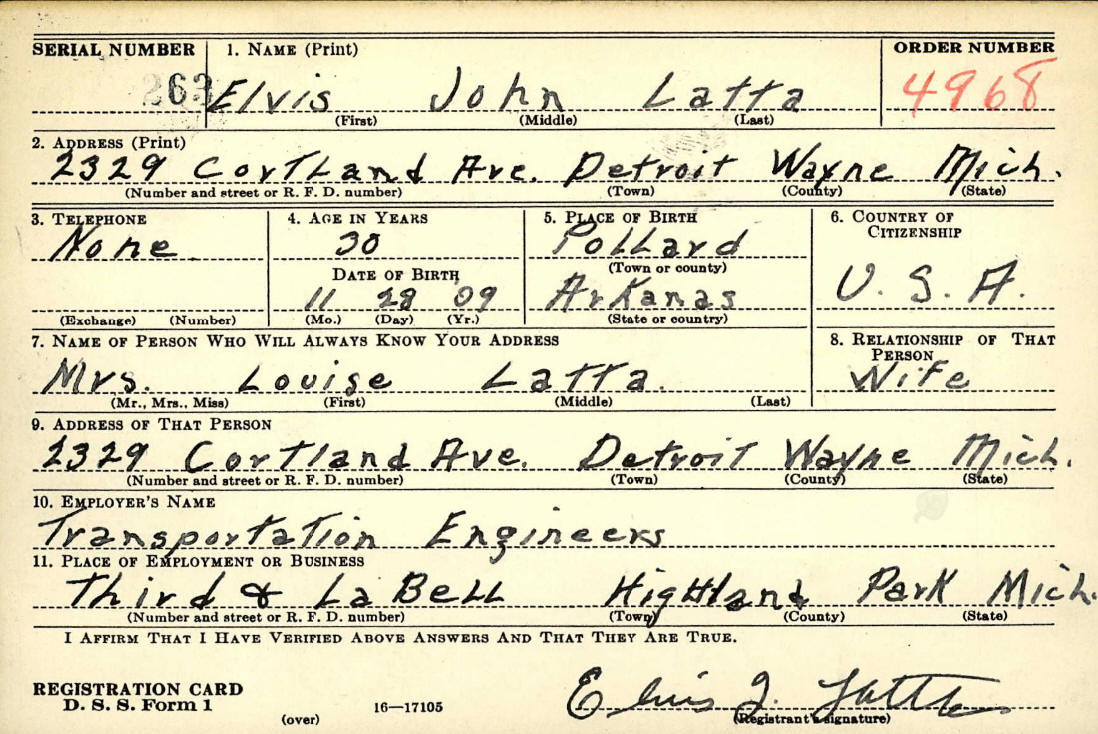 SERIAL NUMBER 1. NAME (Print) ORDER NUMBER
263 Elvis John Latta 4968
(First) (Middle) (Last)
2. ADDRESS (Print)
2329 Cortland Ave. Detroit Wayne Mich.
(Number and street or R. F. D. number) (Town) (County) (State)
3. TELEPHONE 4. AGE IN YEARS 5. PLACE OF BIRTH 6. COUNTRY OF CITIZENSHIP
None 30 Pollard
DATE OF BIRTH (Town or county)
11 28 09 Arkanas U. S. A.
(Exchange) (Number) (Mo.) (Day) (Yr.) (State or country)
7. NAME OF PERSON WHO WILL ALWAYS KNOW YOUR ADDRESS 8. RELATIONSHIP OF THAT PERSON
Mrs. Louise Latta. Wife
(Mr., Mrs., Miss) (First) (Middle) (Last)
9. ADDRESS OF THAT PERSON
2329 Cortland Ave. Detroit Wayne Mich.
(Number and street or R. F. D. number) (Town) (County) (State)
10. EMPLOYER'S NAME
Transportation Engineers
11. PLACE OF EMPLOYMENT OR BUSINESS
Third & LaBell Highland Park Mich.
(Number and street or R. F. D. number) (Town) (County) (State)
I AFFIRM THAT I HAVE VERIFIED ABOVE ANSWERS AND THAT THEY ARE TRUE.
REGISTRATION CARD
D. S. S. Form 1 16—17105 Elvis J. Latta
(over) (Registrant's signature)